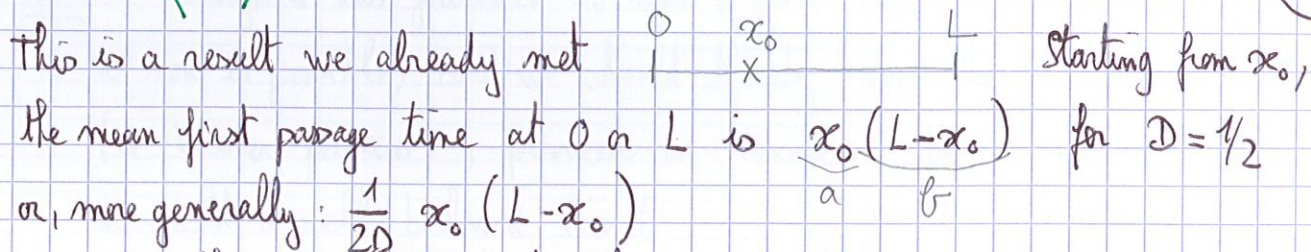 This is a result we already met 0 x₀ L Starting from x₀,
the mean first passage time at 0 or L is x₀ (L-x₀) for D = 1/2
a b
or, more generally : 1/2D x₀ (L-x₀)